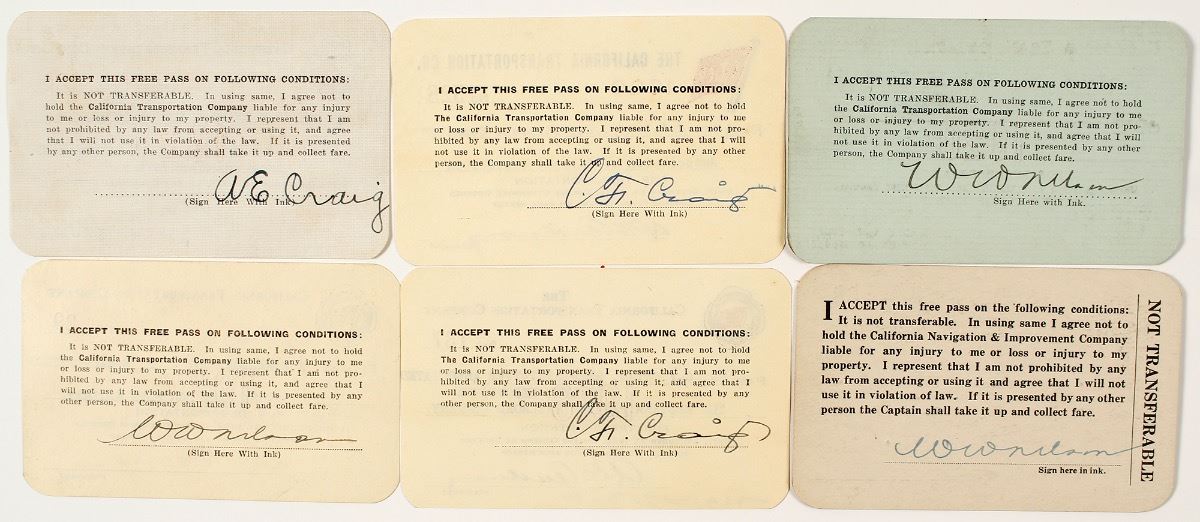 I ACCEPT THIS FREE PASS ON FOLLOWING CONDITIONS:
It is NOT TRANSFERABLE. In using same, I agree not to
hold the California Transportation Company liable for any injury
to me or loss or injury to my property. I represent that I am
not prohibited by any law from accepting or using it, and agree
that I will not use it in violation of the law. If it is presented
by any other person, the Company shall take it up and collect fare.
A E Craig
(Sign Here With Ink)
I ACCEPT THIS FREE PASS ON FOLLOWING CONDITIONS:
It is NOT TRANSFERABLE. In using same, I agree not to hold
The California Transportation Company liable for any injury to me
or loss or injury to my property. I represent that I am not pro-
hibited by any law from accepting or using it, and agree that I will
not use it in violation of the law. If it is presented by any other
person, the Company shall take it up and collect fare.
C. H. Craig
(Sign Here With Ink)
I ACCEPT THIS FREE PASS ON FOLLOWING CONDITIONS:
It is NOT TRANSFERABLE. In using same, I agree not to hold
the California Transportation Company liable for any injury to me
or loss or injury to my property. I represent that I am not pro-
hibited by any law from accepting or using it, and agree that I will
not use it in violation of the law. If it is presented by any other
person, the Company shall take it up and collect fare.
W W Wilson
Sign Here with Ink.
I ACCEPT THIS FREE PASS ON FOLLOWING CONDITIONS:
It is NOT TRANSFERABLE. In using same, I agree not to hold
the California Transportation Company liable for any injury to me
or loss or injury to my property. I represent that I am not pro-
hibited by any law from accepting or using it, and agree that I
will not use it in violation of the law. If it is presented by any
other person, the Company shall take it up and collect fare.
W W Wilson
(Sign Here With Ink)
I ACCEPT THIS FREE PASS ON FOLLOWING CONDITIONS:
It is NOT TRANSFERABLE. In using same, I agree not to hold
The California Transportation Company liable for any injury to me
or loss or injury to my property. I represent that I am not pro-
hibited by any law from accepting or using it, and agree that I
will not use it in violation of the law. If it is presented by any
other person, the Company shall take it up and collect fare.
C. H. Craig
(Sign Here With Ink)
I ACCEPT this free pass on the following conditions:
It is not transferable. In using same I agree not to
hold the California Navigation & Improvement Company
liable for any injury to me or loss or injury to my
property. I represent that I am not prohibited by any
law from accepting or using it and agree that I will not
use it in violation of law. If it is presented by any other
person the Captain shall take it up and collect fare.
W W Wilson
Sign here in ink.
NOT TRANSFERABLE